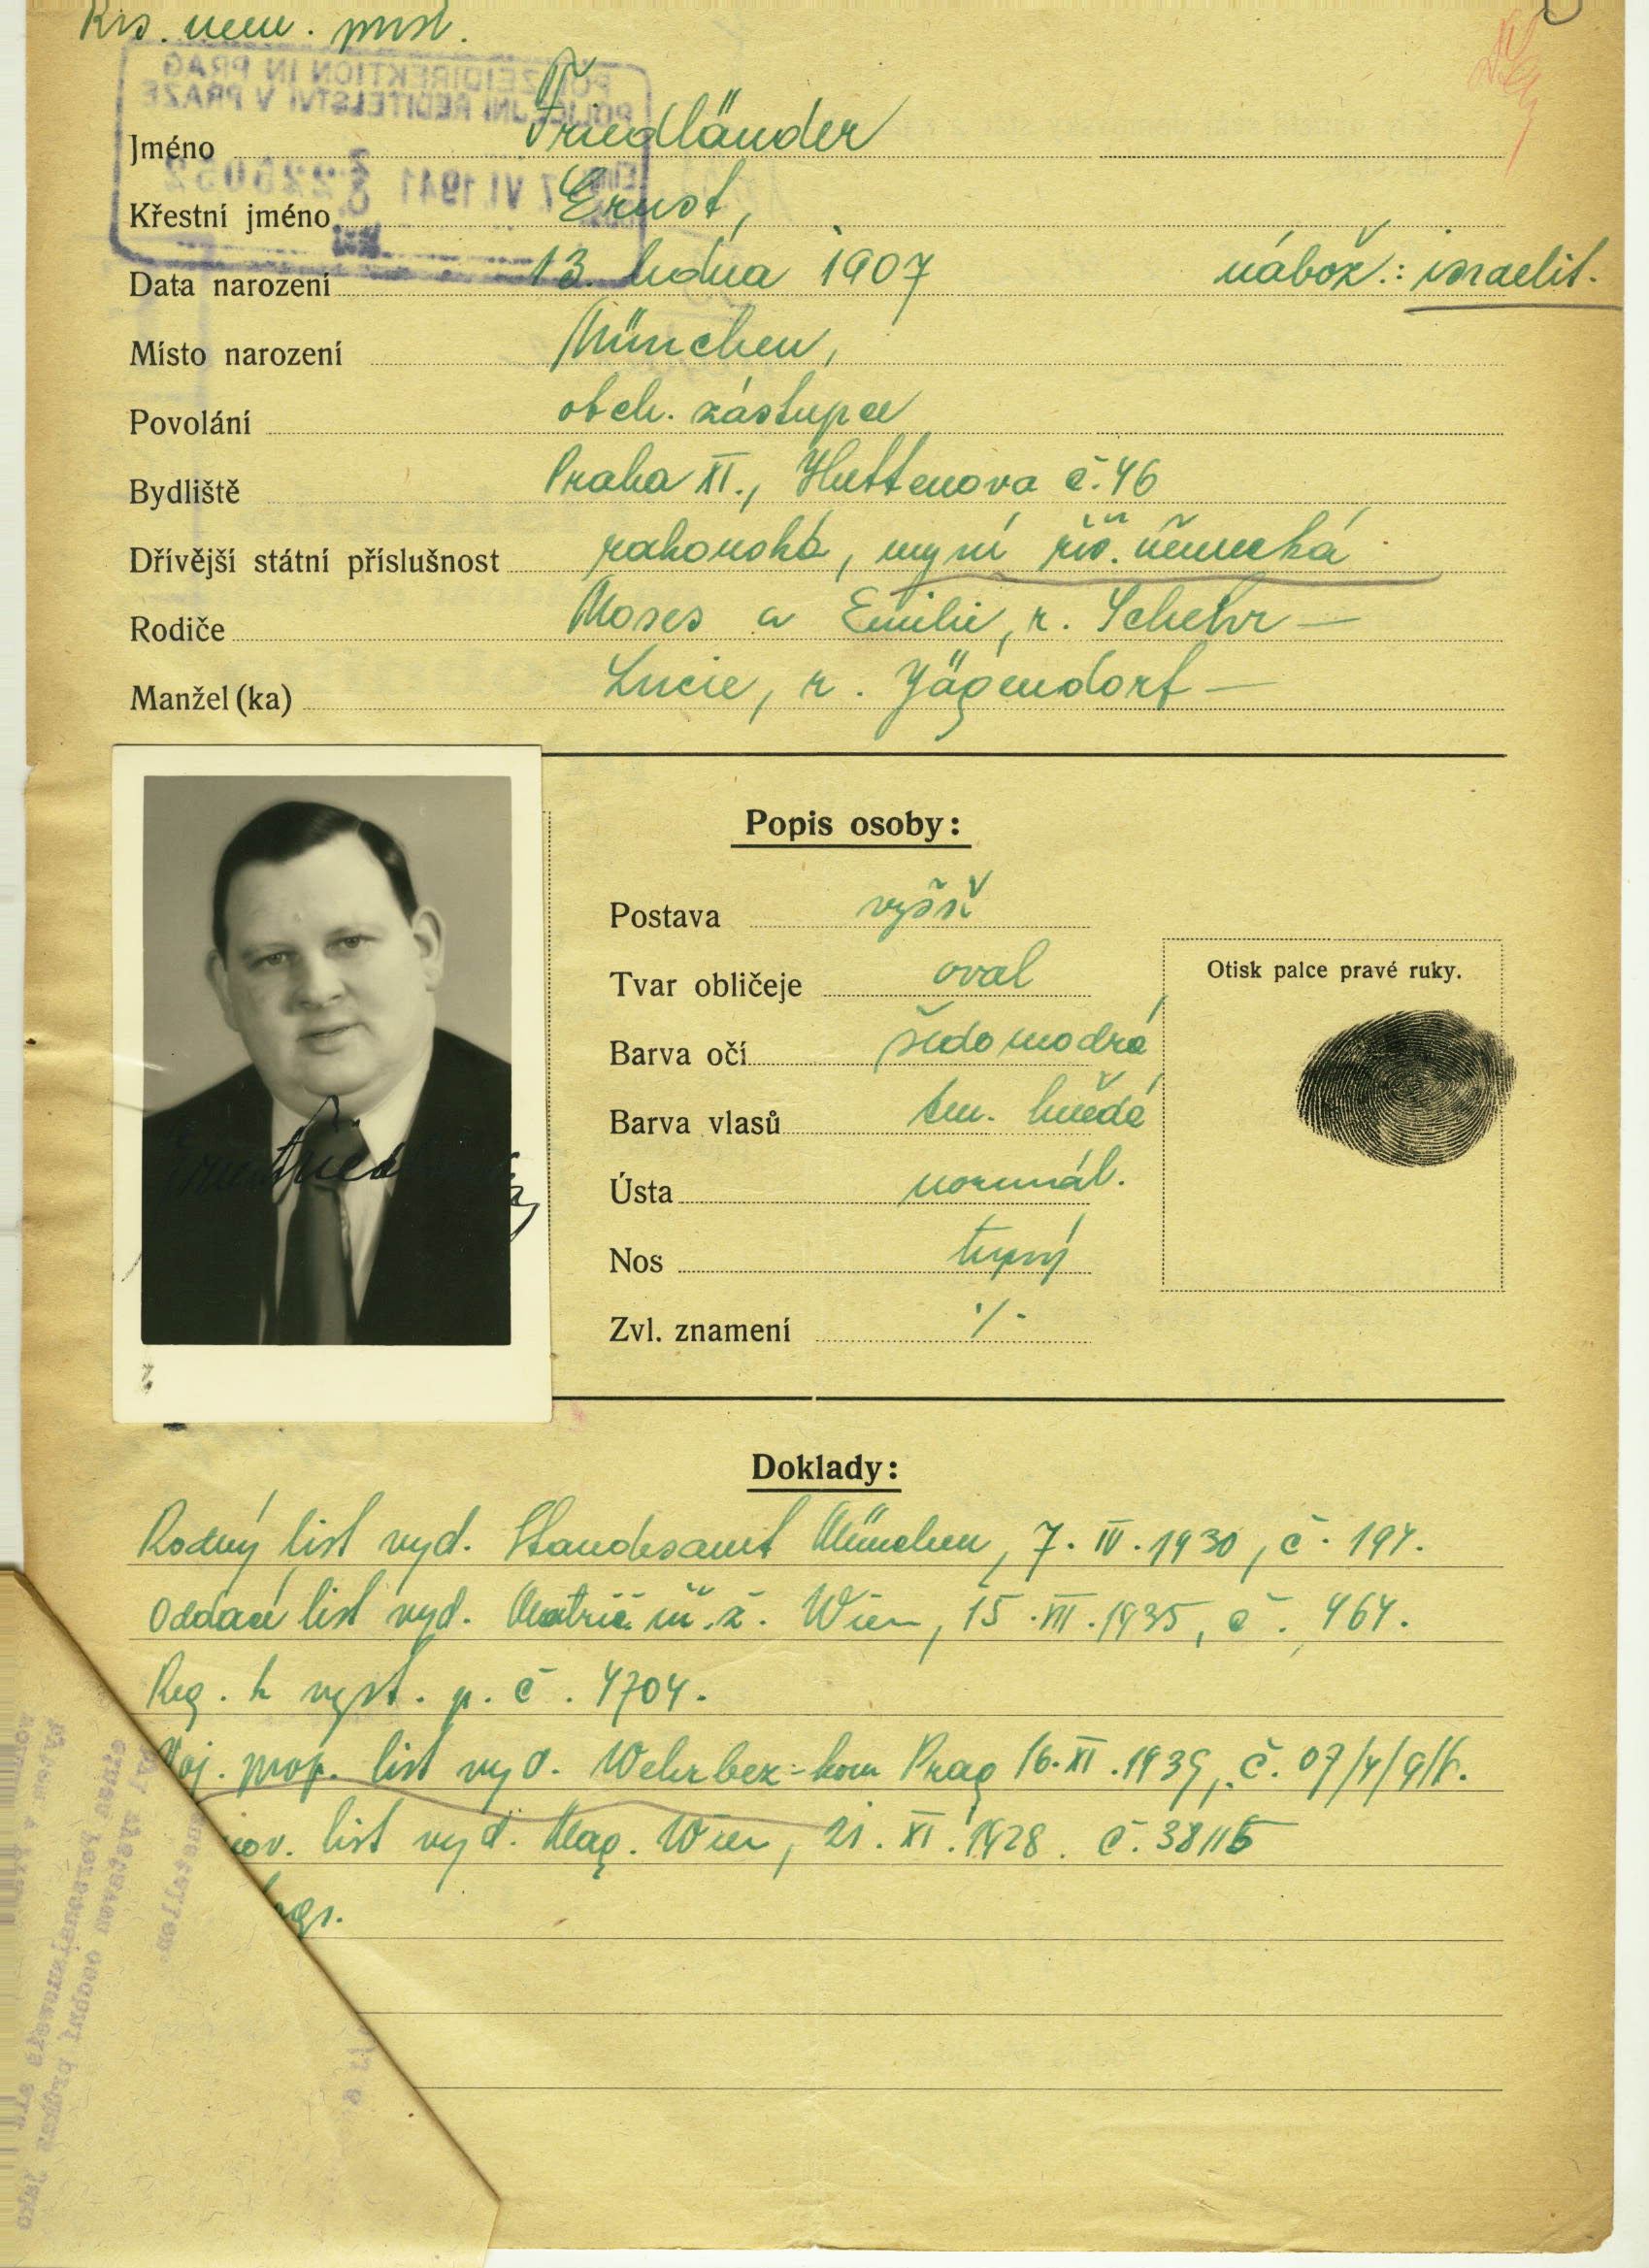 Říš. něm. přísl.
POLIZEIDIREKTION IN PRAG
POLICEJNÍ ŘEDITELSTVÍ V PRAZE
7. VI. 1941 225052
Jméno Friedländer
Křestní jméno Ernst,
Data narození 13. ledna 1907 nábož.: israelit.
Místo narození München,
Povolání obch. zástupce
Bydliště Praha XI., Huttenova č. 46
Dřívější státní příslušnost rakouská, nyní říš. německá
Rodiče Moses a Emilie, r. Schehr —
Manžel(ka) Lucie, r. Jägendorf —
Popis osoby:
Postava vyšší
Tvar obličeje oval
Otisk palce pravé ruky.
Barva očí šedomodré
Barva vlasů tm. hnědé
Ústa normál.
Nos tupý
Zvl. znamení ·/·
Doklady:
Rodný list vyd. Standesamt München, 7. IV. 1930, č. 194.
Oddací list vyd. Matrič. úř. ž. Wien, 15. III. 1935, č. 464.
Reg. k vyst. p. č. 4704.
Voj. prop. list vyd. Wehrbez-kom Prag 16. XI. 1939, č.
list vyd. Mag. Wien, 21. XI. 1928. č.